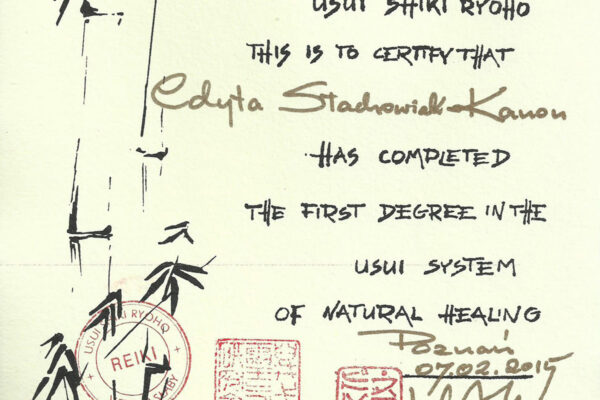 USUI SHIKI RYOHO
THIS IS TO CERTIFY THAT
Edyta Stachowiak-Kanon
HAS COMPLETED
THE FIRST DEGREE IN THE
USUI SYSTEM
OF NATURAL HEALING
Poznań
07.02.2015
USUI SHIKI RYOHO
REIKI